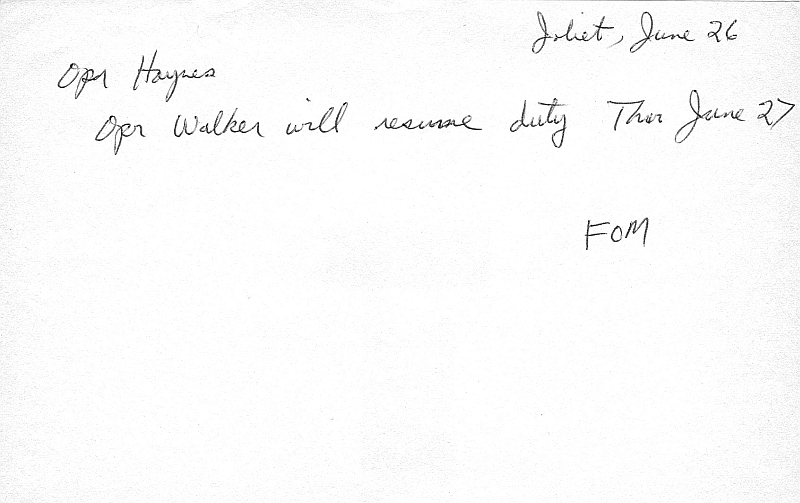 Joliet, June 26
Opr Haynes
Opr Walker will resume duty Thur June 27
FOM